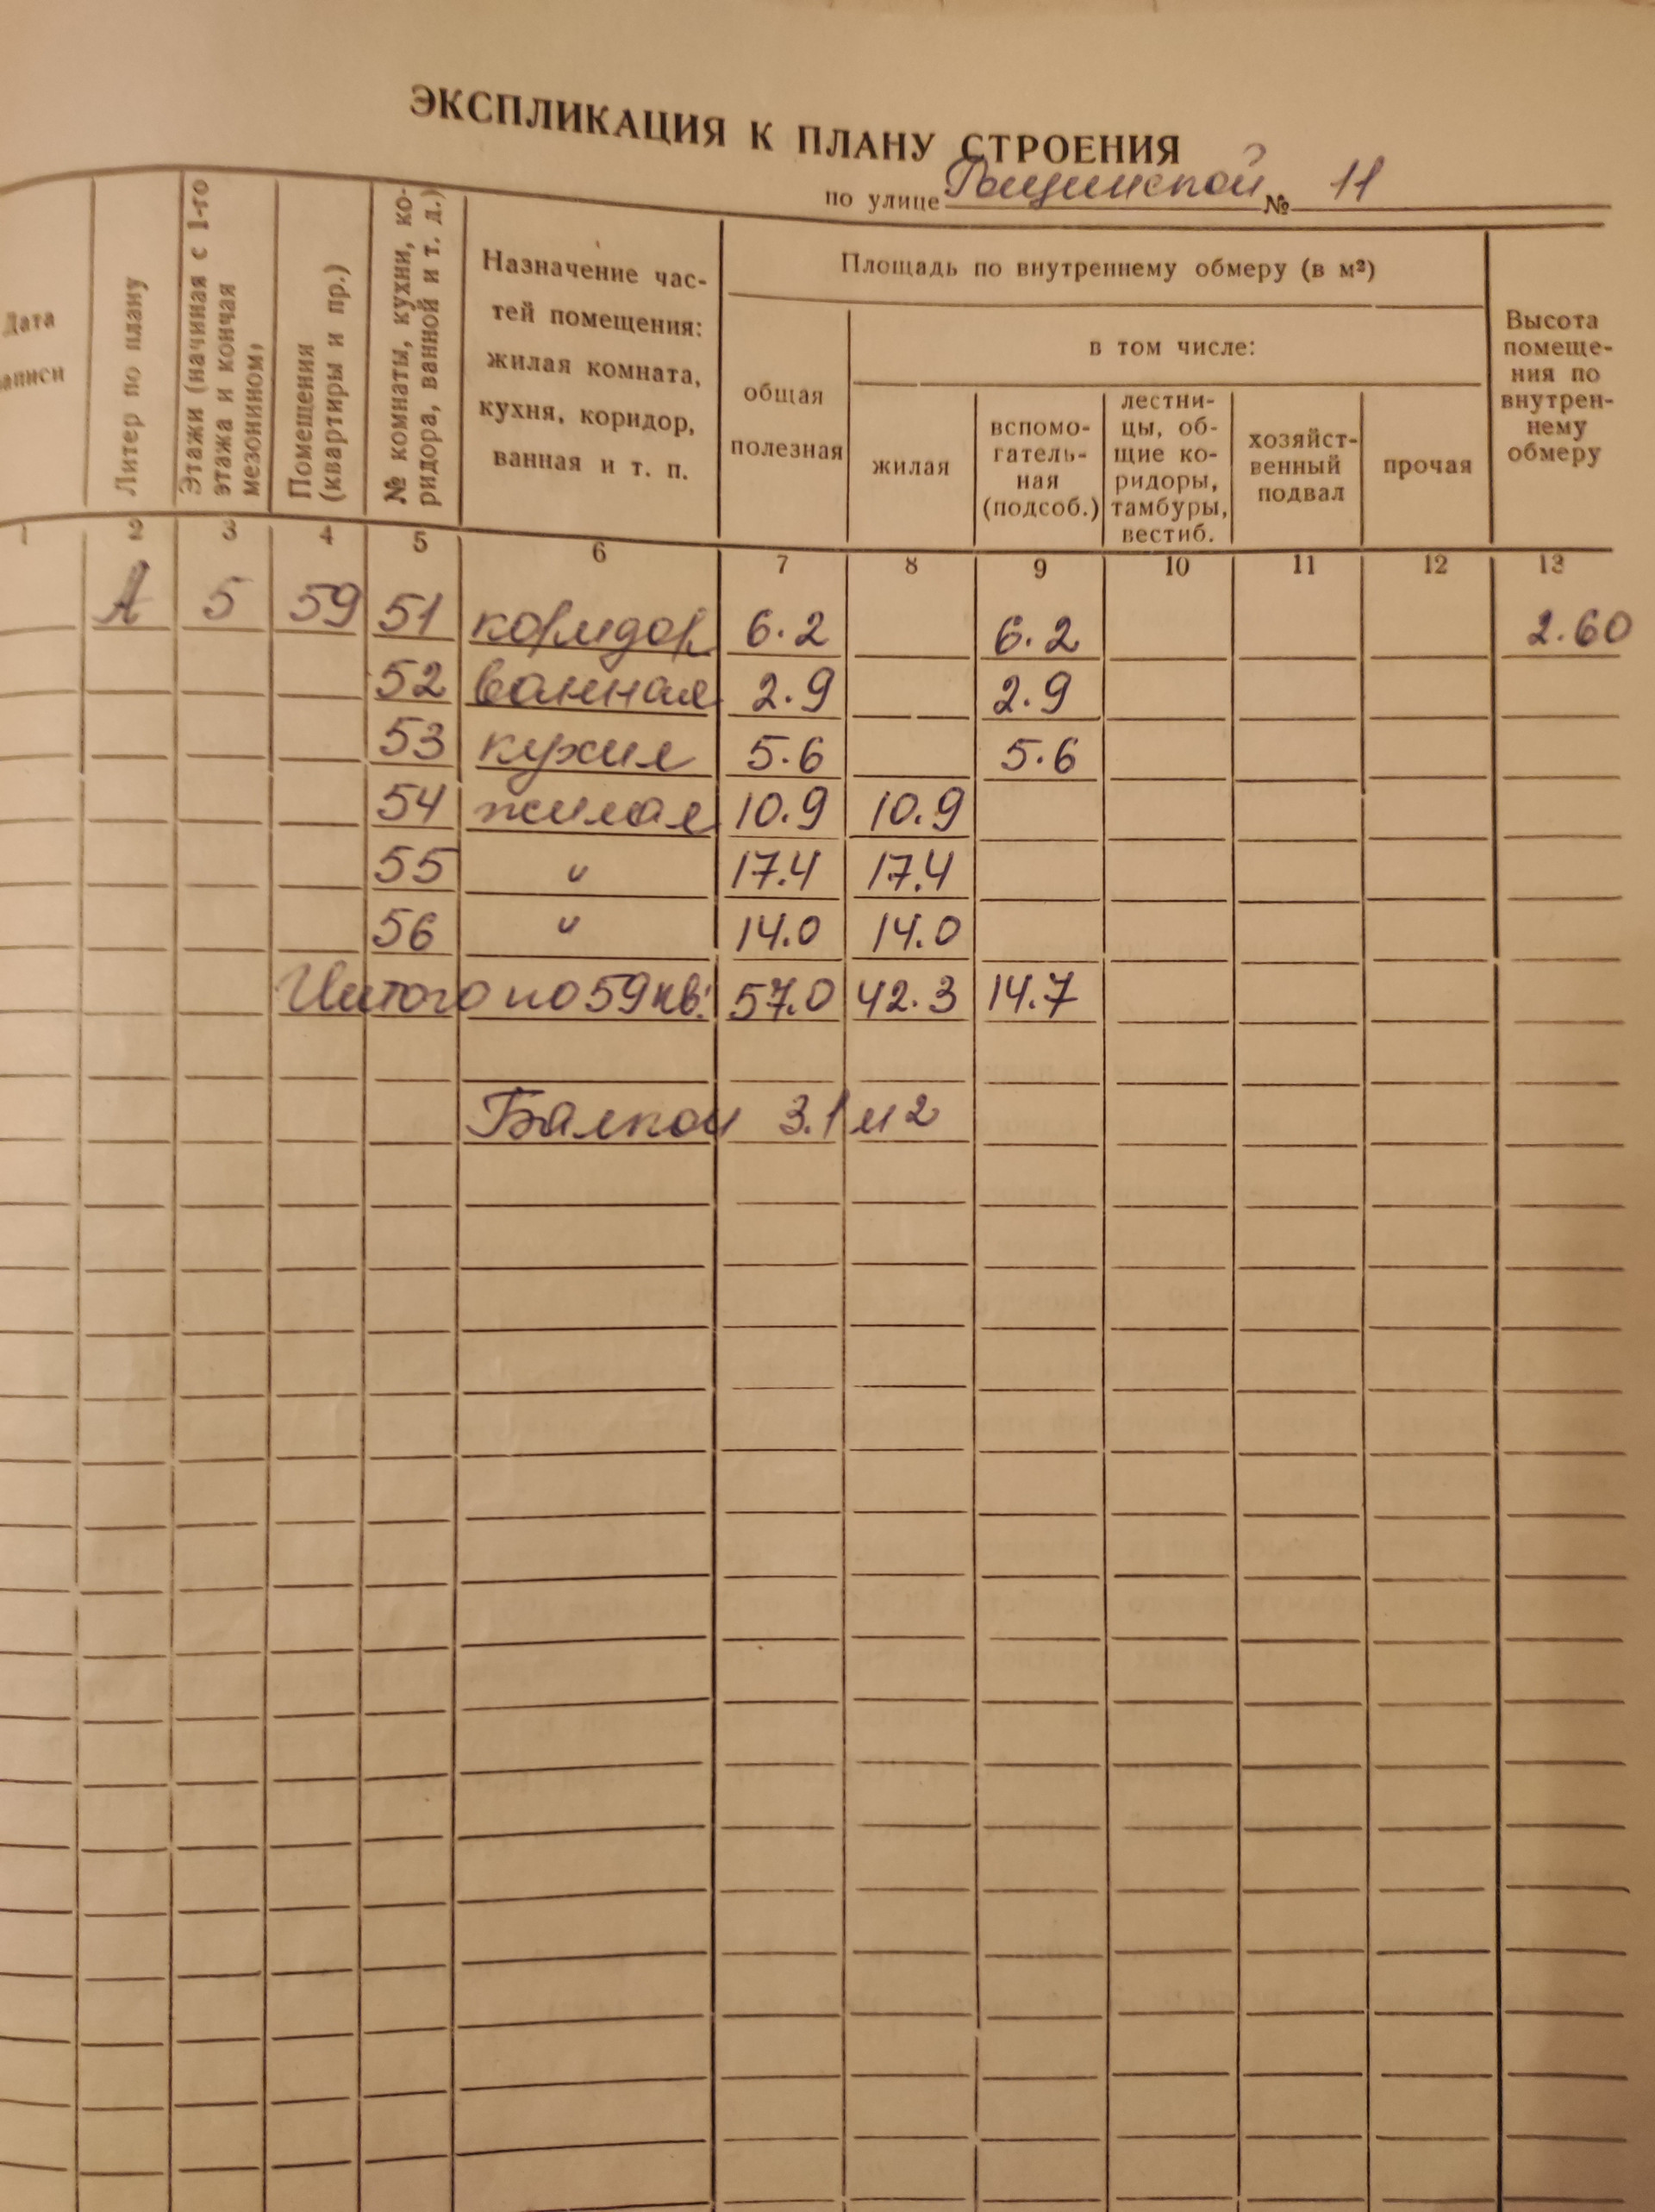 ЭКСПЛИКАЦИЯ К ПЛАНУ СТРОЕНИЯ
по улице Рощинской № 11
Дата
записи
Литер по плану
Этажи (начиная с 1-го
этажа и кончая
мезонином)
Помещения
(квартиры и пр.)
№ комнаты, кухни, ко-
ридора, ванной и т. д.)
Назначение час-
тей помещения:
жилая комната,
кухня, коридор,
ванная и т. п.
Площадь по внутреннему обмеру (в м²)
общая
полезная
в том числе:
жилая
вспомо-
гатель-
ная
(подсоб.)
лестни-
цы, об-
щие ко-
ридоры,
тамбуры,
вестиб.
хозяйст-
венный
подвал
прочая
Высота
помеще-
ния по
внутрен-
нему
обмеру
1 2 3 4 5 6 7 8 9 10 11 12 13
А 5 59 51 коридор 6.2 6.2 2.60
52 ванная 2.9 2.9
53 кухня 5.6 5.6
54 жилая 10.9 10.9
55 " 17.4 17.4
56 " 14.0 14.0
Итого по 59 кв: 57.0 42.3 14.7
Балкон 3.1 м2